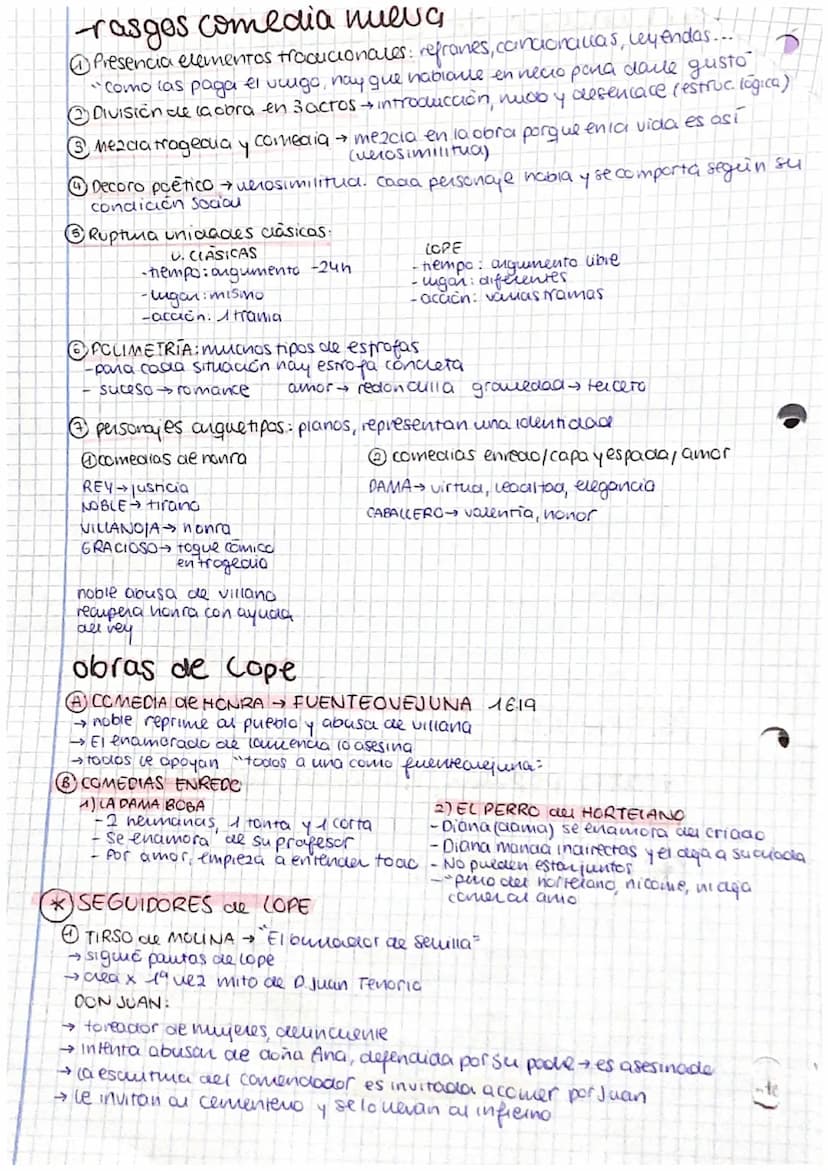 -rasgos comedia nueva
① Presencia elementos tradicionales: refranes, cancioncillas, leyendas...
"como las paga el vulgo, hay que hablarle en necio para darle gusto"
② División de la obra en 3 actos → introducción, nudo y desenlace (estruc. lógica)
③ Mezcla tragedia y comedia → mezcla en la obra porque en la vida es así
(verosimilitud)
④ Decoro poético → verosimilitud. Cada personaje habla y se comporta según su
condición social
⑤ Ruptura unidades clásicas.
U. CLÁSICAS
-tiempo: argumento -24h
-lugar: mismo
-acción: 1 trama
LOPE
-tiempo: argumento libre
-lugar: diferentes
-acción: varias tramas
⑥ POLIMETRÍA: muchos tipos de estrofas
-para cada situación hay estrofa concreta
- suceso → romance amor → redondilla gravedad → terceto
⑦ personajes arquetipos: planos, representan una identidad
① comedias de honra
REY → justicia
NOBLE → tirano
VILLANO/A → honra
GRACIOSO → toque cómico
en tragedia
noble abusa de villano
recupera honra con ayuda
del rey
② comedias enredo/capa y espada/amor
DAMA → virtud, lealtad, elegancia
CABALLERO → valentía, honor
obras de Lope
Ⓐ COMEDIA de HONRA → FUENTEOVEJUNA 1619
→ noble reprime al pueblo y abusa de villana
→ El enamorado de Laurencia lo asesina
→ todos le apoyan "todos a una como fuenteovejuna"
Ⓑ COMEDIAS ENREDO
1) LA DAMA BOBA
- 2 hermanas, 1 tonta y 1 corta
- Se enamora de su profesor
- Por amor, empieza a entender todo
2) EL PERRO del HORTELANO
- Diana (dama) se enamora del criado
- Diana manda indirectas y el diga a su criada
- No pueden estar juntos
- "perro del hortelano, ni come, ni deja
comer al amo
* SEGUIDORES de LOPE
① TIRSO de MOLINA → "El burlador de Sevilla"
→ sigue pautas de Lope
→ crea x 1ª vez mito de D. Juan Tenorio
DON JUAN:
→ toreador de mujeres, delincuente
→ intenta abusar de doña Ana, defendida por su padre → es asesinado
→ la escultura del comendador es invitada a comer por Juan
→ le invitan al cementerio y se lo llevan al infierno